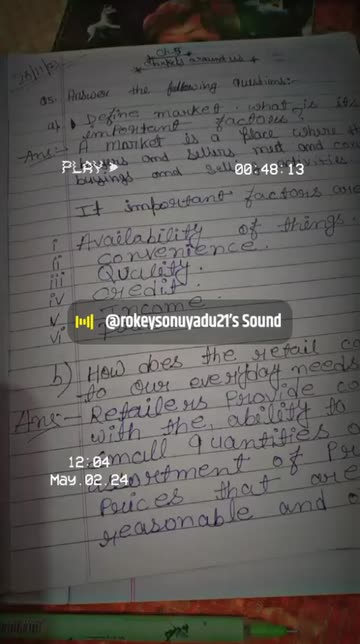 Ch-5
Markets around us
Q5. Answer the following questions:-
a) Define market. what is its
important factors?
Ans:- A market is a place where
buyers and sellers meet and
buyings and activities.
PLAY
00:48:13
It important factors are
i Availability of things.
ii convenience.
iii Quality.
iv credit.
v. Income
vi
@rokeysonuyadu21's Sound
b) How does the retail
to our everyday needs
Ans:- Retailers provide
with the, ability to
small quantities
assortment of
Prices that are
reasonable and
12:04
May.02.24